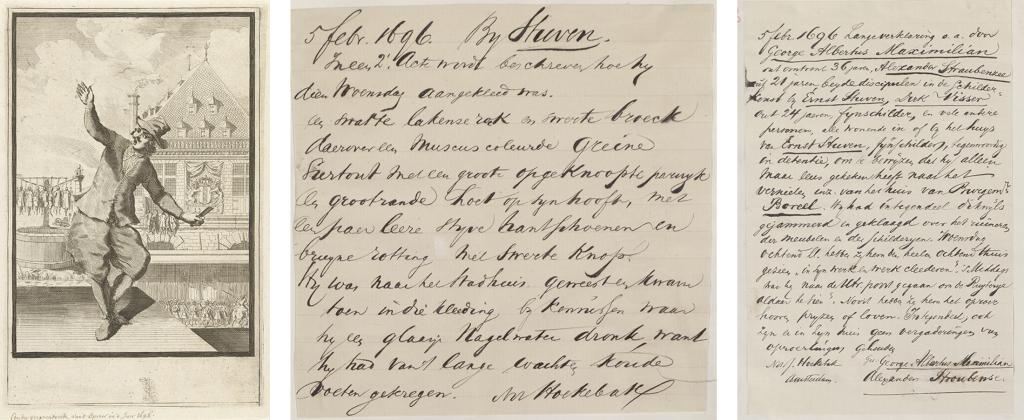 5 febr. 1696. By Stuven.
In een 2e Acte wordt beschreven hoe hy
dien Woensdag aangekleed was.
een swarte lakense rok en swerte broeck
daerover een Muscus coleurde greine
Surtout met een groote opgeknoopte paruyk
een grootrande hoet op syn hooft, met
een paer leere styve hantschoenen en
bruyne rotting met swerte Knop.
Hy was naar het Stadhuis geweest en kwam
toen in die kleeding by kennissen waar
hy een glaasje Nagelwater dronk, want
hy had van 't lange wachten koude
voeten gekregen. Not Hoekebak
5 febr. 1696 Lange verklaring o.a. door
George Albertus Maximilian
out omtrent 36 jaren, Alexander Straubenzee
21 jaren, beyde discipulen in de schilder-
konst by Ernst Stuven, Dirk Visser
out 24 jaren, fynschilder, en vele andere
personen, alle wonende in of by het huys
van Ernst Stuven, fynschilder, tegenwoordig
in detentie, om te bewyzen dat hy alleen
maar heeft gekeken naar het
vernielen enz. van het huis van Burgemr.
Boreel. Hy had integendeel
gejammerd en geklaagd over het ruineren
der meubelen en der schilderyen. Woensdag
ochtend ll. hebben zy hem den heelen ochtend thuis
gezien, in syn werk en werk cleederen. 's Middags
was hy naar de Utr. poort gegaan om de
aldaar te zien. Nooit hebben zy hem het oproer
hooren pryzen of loven. Integendeel, ook
zyn er in zyn huis geen vergaderingen van
oproerlingen gehouden
Not. J. Hoekebak get. George Albertus Maximilian
Amsterdam. Alexander Straubense.